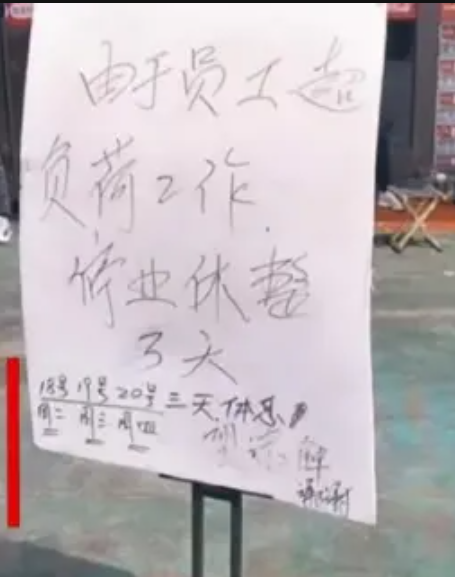 由于员工超
负荷工作.
停业休整
3天
18号 19号 20号 三天休息.
周二 周三 周四
望谅解
谢谢